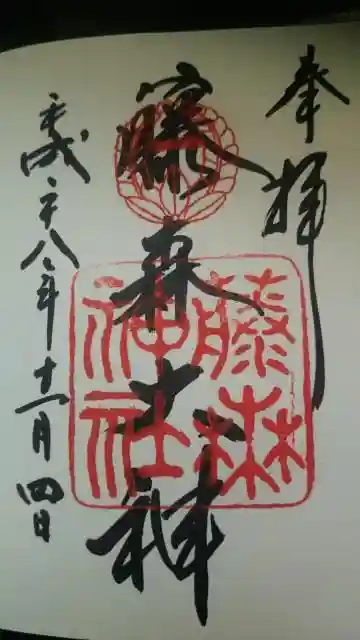 奉拝
藤森大神
藤森
神社
平成二十八年十一月四日